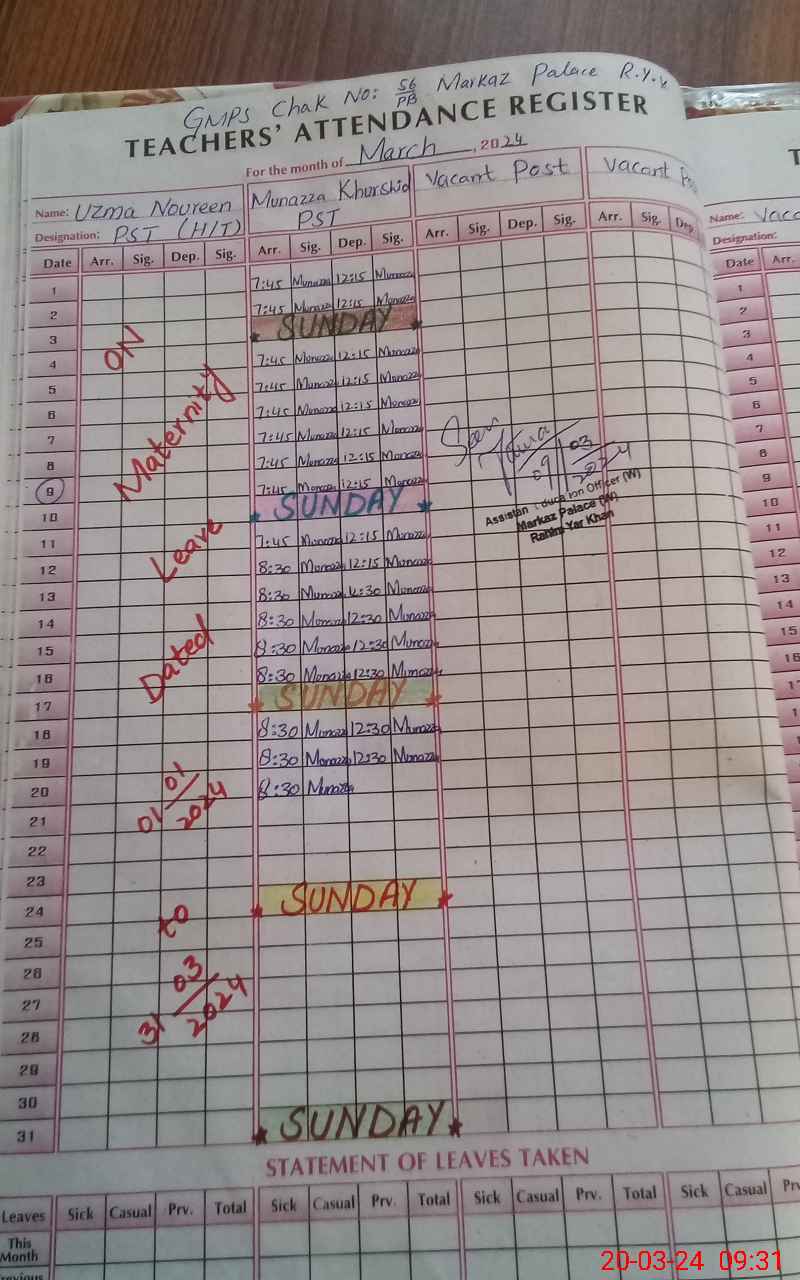 GMPS Chak No: 56/PB Markaz Palace R.Y.K
TEACHERS' ATTENDANCE REGISTER
For the month of March, 2024
Name: Uzma Noureen Munazza Khurshid Vacant Post Vacant Name: Vaca
Designation: PST (H/T) PST Designation:
Date Arr. Sig. Dep. Sig. Arr. Sig. Dep. Sig. Arr. Sig. Dep. Sig. Arr. Sig. Dep. Date Arr.
1 7:45 Munazza 12:15 Munazza 1
2 7:45 Munazza 12:15 Munazza 2
3 SUNDAY 3
4 ON 7:45 Munazza 12:15 Munazza 4
5 7:45 Munazza 12:15 Munazza 5
6 7:45 Munazza 12:15 Munazza 6
7 Maternity 7:45 Munazza 12:15 Munazza 7
8 7:45 Munazza 12:15 Munazza 8
9 7:45 Munazza 12:15 Munazza 09/03/2024 9
10 SUNDAY 10
Assistan Educa ion Officer (W)
Markaz Palace (W)
Rahim Yar Khan
11 7:45 Munazza 12:15 Munazza 11
12 Leave 8:30 Munazza 12:15 Munazza 12
13 8:30 Munazza Munazza 13
14 8:30 Munazza 12:30 Munazza 14
15 8:30 Munazza 12:30 Munazza 15
16 Dated 8:30 Munazza 12:30 Munazza 16
17 SUNDAY
18 8:30 Munazza 12:30 Munazza
19 8:30 Munazza 12:30 Munazza
20 8:30 Munazza
21 01/01/2024
22
23
24 SUNDAY
25 to
26
27
28 31/03/2024
29
30
31 SUNDAY
STATEMENT OF LEAVES TAKEN
Leaves Sick Casual Prv. Total Sick Casual Prv. Total Sick Casual Prv. Total Sick Casual
This Month
20-03-24 09:31